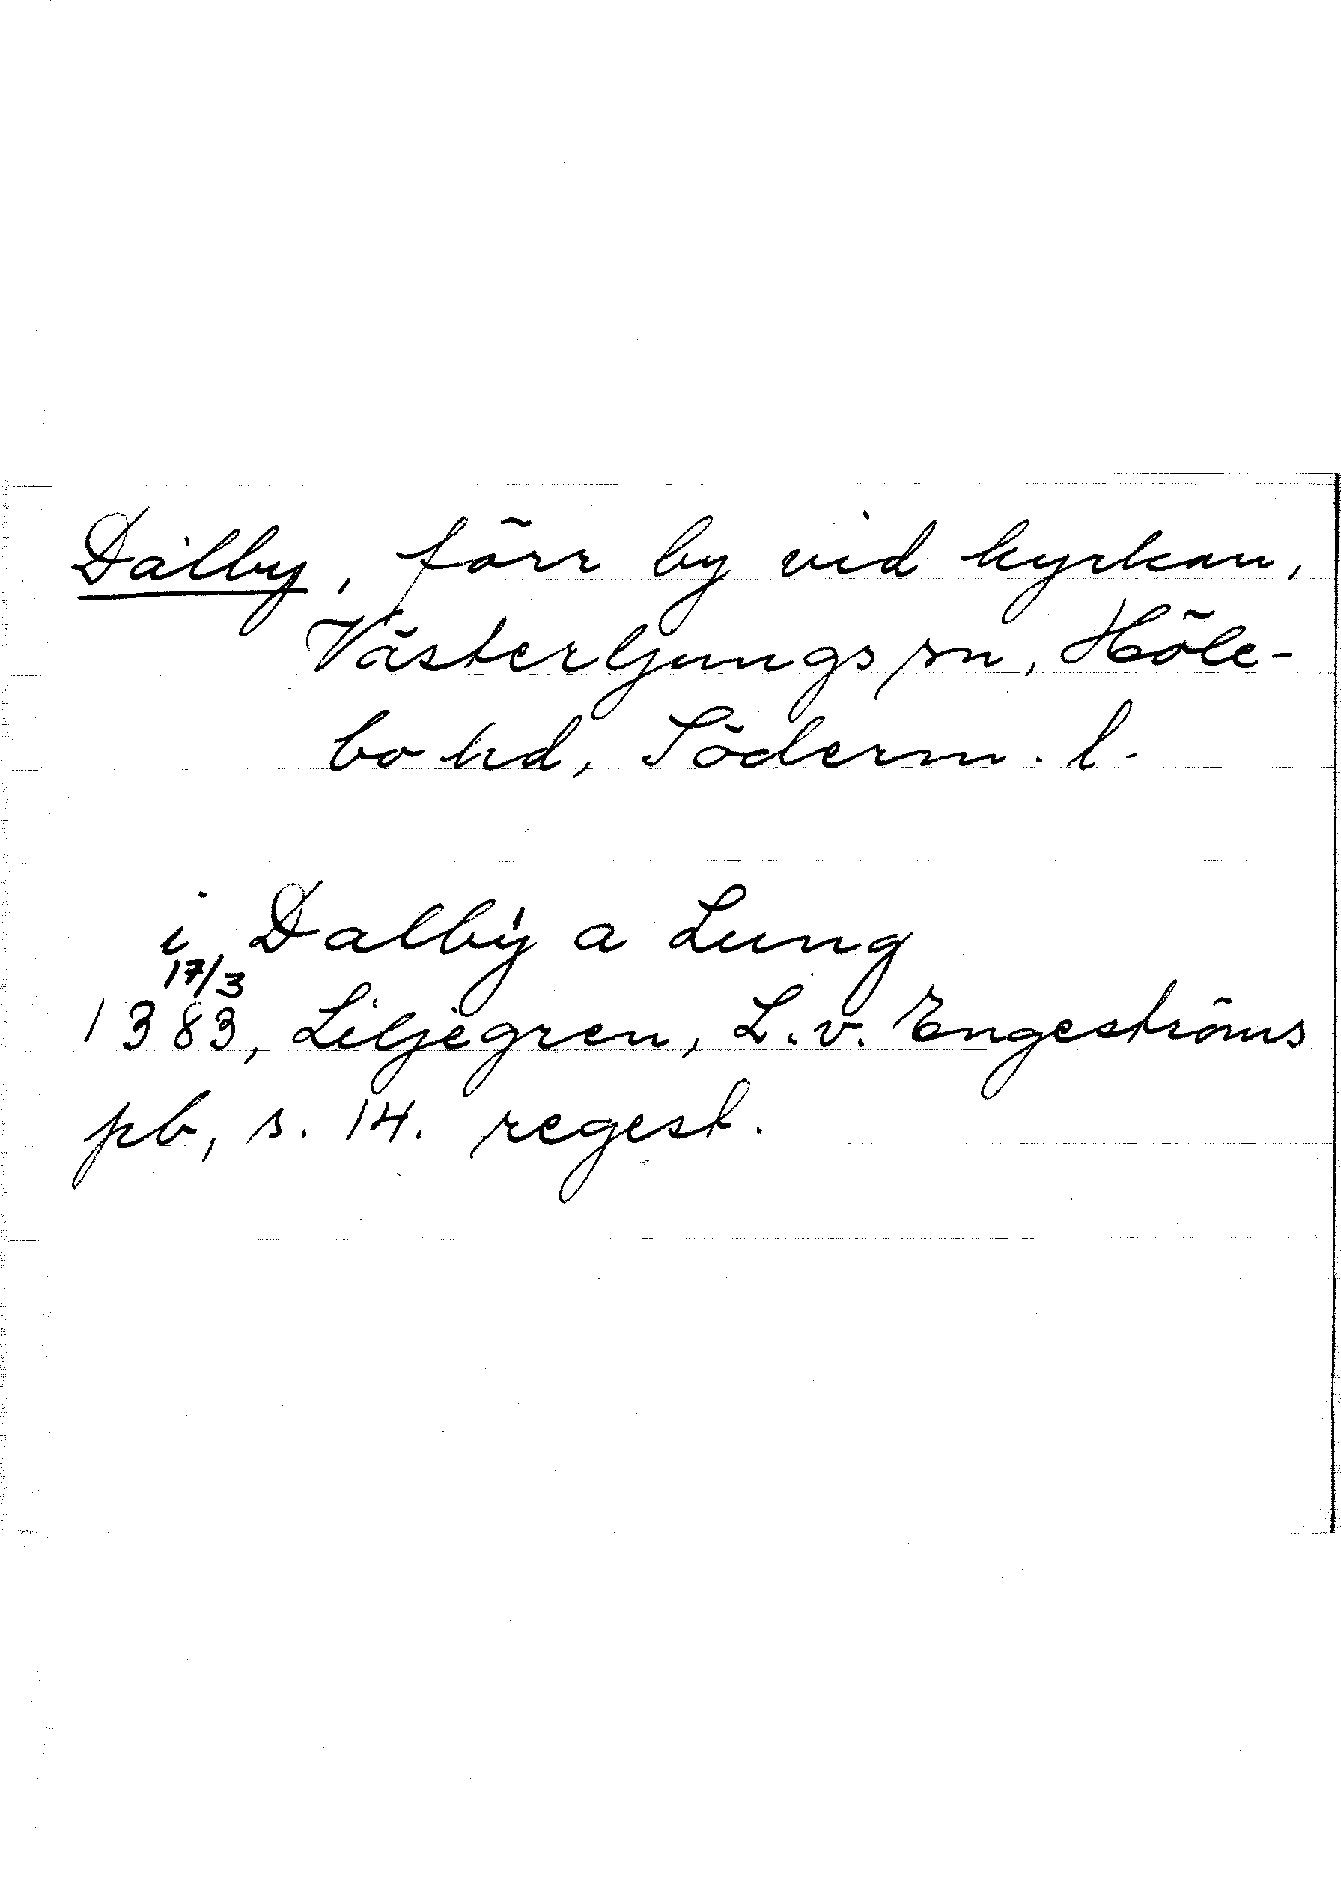 Dalby, förr by vid kyrkan,
Västerljungs sn, Höle-
bo hd, Söderm. l.
i Dalby a Lung
17/3
1383, Liljegren, L. v. Engeströms
pb, s. 14. regest.